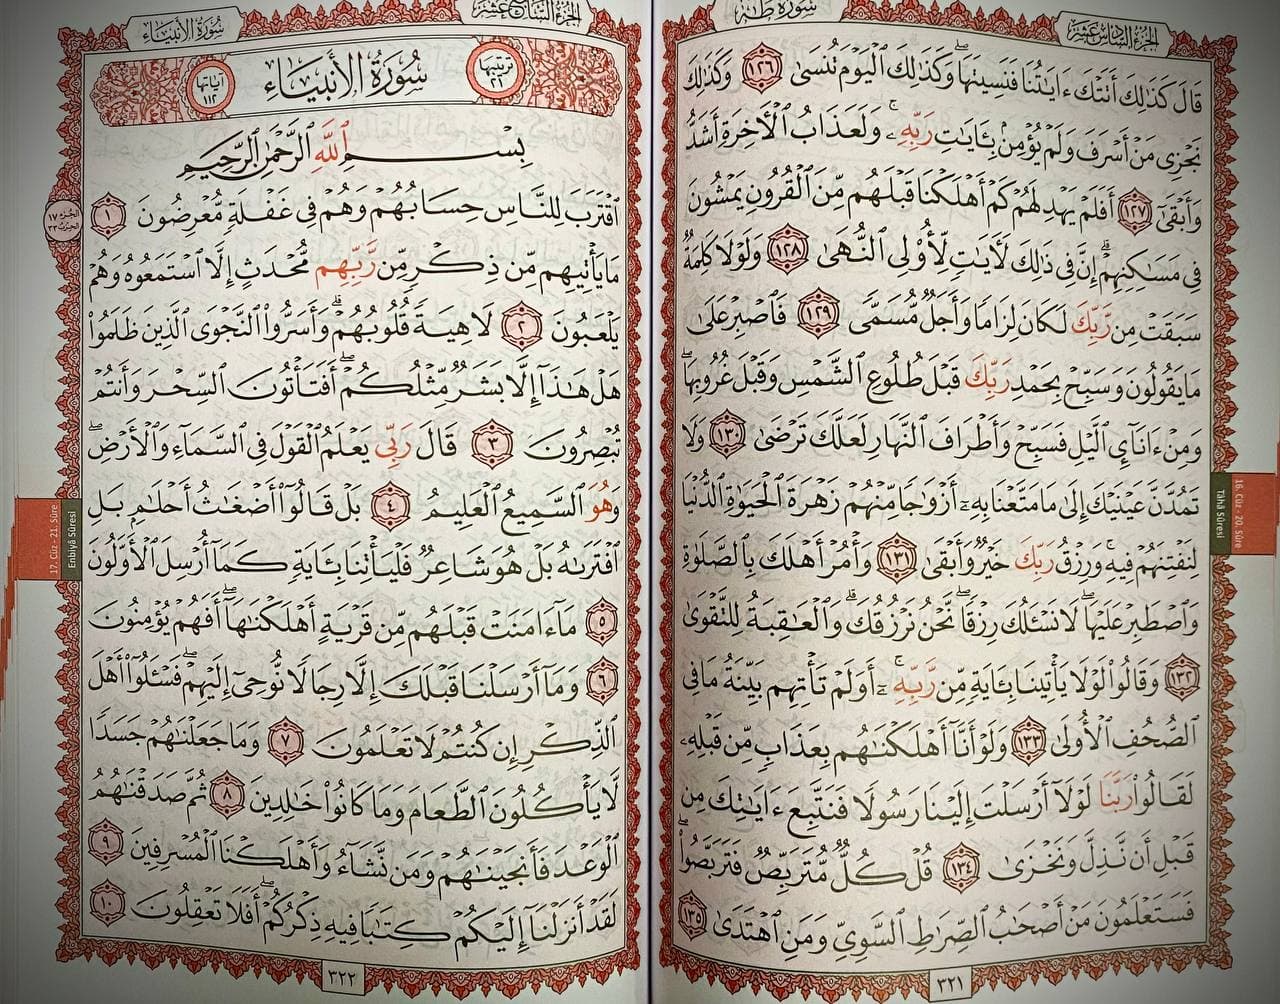 الجزء السادس عشر
سورة طه
قَالَ كَذَٰلِكَ أَتَتْكَ ءَايَٰتُنَا فَنَسِيتَهَاۖ وَكَذَٰلِكَ ٱلْيَوْمَ تُنسَىٰ ١٢٦ وَكَذَٰلِكَ
نَجْزِى مَنْ أَسْرَفَ وَلَمْ يُؤْمِنۢ بِـَٔايَٰتِ رَبِّهِۦۚ وَلَعَذَابُ ٱلْءَاخِرَةِ أَشَدُّ
وَأَبْقَىٰٓ ١٢٧ أَفَلَمْ يَهْدِ لَهُمْ كَمْ أَهْلَكْنَا قَبْلَهُم مِّنَ ٱلْقُرُونِ يَمْشُونَ
فِى مَسَٰكِنِهِمْۗ إِنَّ فِى ذَٰلِكَ لَءَايَٰتٍ لِّأُو۟لِى ٱلنُّهَىٰ ١٢٨ وَلَوْلَا كَلِمَةٌ
سَبَقَتْ مِن رَّبِّكَ لَكَانَ لِزَامًا وَأَجَلٌ مُّسَمًّى ١٢٩ فَٱصْبِرْ عَلَىٰ
مَا يَقُولُونَ وَسَبِّحْ بِحَمْدِ رَبِّكَ قَبْلَ طُلُوعِ ٱلشَّمْسِ وَقَبْلَ غُرُوبِهَاۖ
وَمِنْ ءَانَآئِ ٱلَّيْلِ فَسَبِّحْ وَأَطْرَافَ ٱلنَّهَارِ لَعَلَّكَ تَرْضَىٰ ١٣٠ وَلَا
تَمُدَّنَّ عَيْنَيْكَ إِلَىٰ مَا مَتَّعْنَا بِهِۦٓ أَزْوَٰجًا مِّنْهُمْ زَهْرَةَ ٱلْحَيَوٰةِ ٱلدُّنْيَا
لِنَفْتِنَهُمْ فِيهِۚ وَرِزْقُ رَبِّكَ خَيْرٌ وَأَبْقَىٰ ١٣١ وَأْمُرْ أَهْلَكَ بِٱلصَّلَوٰةِ
وَٱصْطَبِرْ عَلَيْهَاۖ لَا نَسْـَٔلُكَ رِزْقًاۖ نَّحْنُ نَرْزُقُكَۗ وَٱلْعَٰقِبَةُ لِلتَّقْوَىٰ
١٣٢ وَقَالُوا۟ لَوْلَا يَأْتِينَا بِـَٔايَةٍ مِّن رَّبِّهِۦٓۚ أَوَلَمْ تَأْتِهِم بَيِّنَةُ مَا فِى
ٱلصُّحُفِ ٱلْأُولَىٰ ١٣٣ وَلَوْ أَنَّآ أَهْلَكْنَٰهُم بِعَذَابٍ مِّن قَبْلِهِۦ
لَقَالُوا۟ رَبَّنَا لَوْلَآ أَرْسَلْتَ إِلَيْنَا رَسُولًا فَنَتَّبِعَ ءَايَٰتِكَ مِن
قَبْلِ أَن نَّذِلَّ وَنَخْزَىٰ ١٣٤ قُلْ كُلٌّ مُّتَرَبِّصٌ فَتَرَبَّصُوا۟ۖ
فَسَتَعْلَمُونَ مَنْ أَصْحَٰبُ ٱلصِّرَٰطِ ٱلسَّوِىِّ وَمَنِ ٱهْتَدَىٰ ١٣٥
٣٢١
16. Cüz - 20. Sûre
Tâhâ Sûresi
الجزء السابع عشر
سورة الأنبياء
ترتيبها ٢١
سورة الأنبياء
آياتها ١١٢
بِسْمِ ٱللَّهِ ٱلرَّحْمَٰنِ ٱلرَّحِيمِ
ٱقْتَرَبَ لِلنَّاسِ حِسَابُهُمْ وَهُمْ فِى غَفْلَةٍ مُّعْرِضُونَ ١
مَا يَأْتِيهِم مِّن ذِكْرٍ مِّن رَّبِّهِم مُّحْدَثٍ إِلَّا ٱسْتَمَعُوهُ وَهُمْ
يَلْعَبُونَ ٢ لَاهِيَةً قُلُوبُهُمْۗ وَأَسَرُّوا۟ ٱلنَّجْوَى ٱلَّذِينَ ظَلَمُوا۟
هَلْ هَٰذَآ إِلَّا بَشَرٌ مِّثْلُكُمْۖ أَفَتَأْتُونَ ٱلسِّحْرَ وَأَنتُمْ
تُبْصِرُونَ ٣ قَالَ رَبِّى يَعْلَمُ ٱلْقَوْلَ فِى ٱلسَّمَآءِ وَٱلْأَرْضِۖ
وَهُوَ ٱلسَّمِيعُ ٱلْعَلِيمُ ٤ بَلْ قَالُوٓا۟ أَضْغَٰثُ أَحْلَٰمٍۭ بَلِ
ٱفْتَرَىٰهُ بَلْ هُوَ شَاعِرٌ فَلْيَأْتِنَا بِـَٔايَةٍ كَمَآ أُرْسِلَ ٱلْأَوَّلُونَ
٥ مَآ ءَامَنَتْ قَبْلَهُم مِّن قَرْيَةٍ أَهْلَكْنَٰهَآۖ أَفَهُمْ يُؤْمِنُونَ
٦ وَمَآ أَرْسَلْنَا قَبْلَكَ إِلَّا رِجَالًا نُّوحِىٓ إِلَيْهِمْۖ فَسْـَٔلُوٓا۟ أَهْلَ
ٱلذِّكْرِ إِن كُنتُمْ لَا تَعْلَمُونَ ٧ وَمَا جَعَلْنَٰهُمْ جَسَدًا
لَّا يَأْكُلُونَ ٱلطَّعَامَ وَمَا كَانُوا۟ خَٰلِدِينَ ٨ ثُمَّ صَدَقْنَٰهُمُ
ٱلْوَعْدَ فَأَنجَيْنَٰهُمْ وَمَن نَّشَآءُ وَأَهْلَكْنَا ٱلْمُسْرِفِينَ ٩
لَقَدْ أَنزَلْنَآ إِلَيْكُمْ كِتَٰبًا فِيهِ ذِكْرُكُمْۖ أَفَلَا تَعْقِلُونَ ١٠
٣٢٢
الجزء ١٧
الحزب ٣٣
17. Cüz - 21. Sûre
Enbiyâ Sûresi